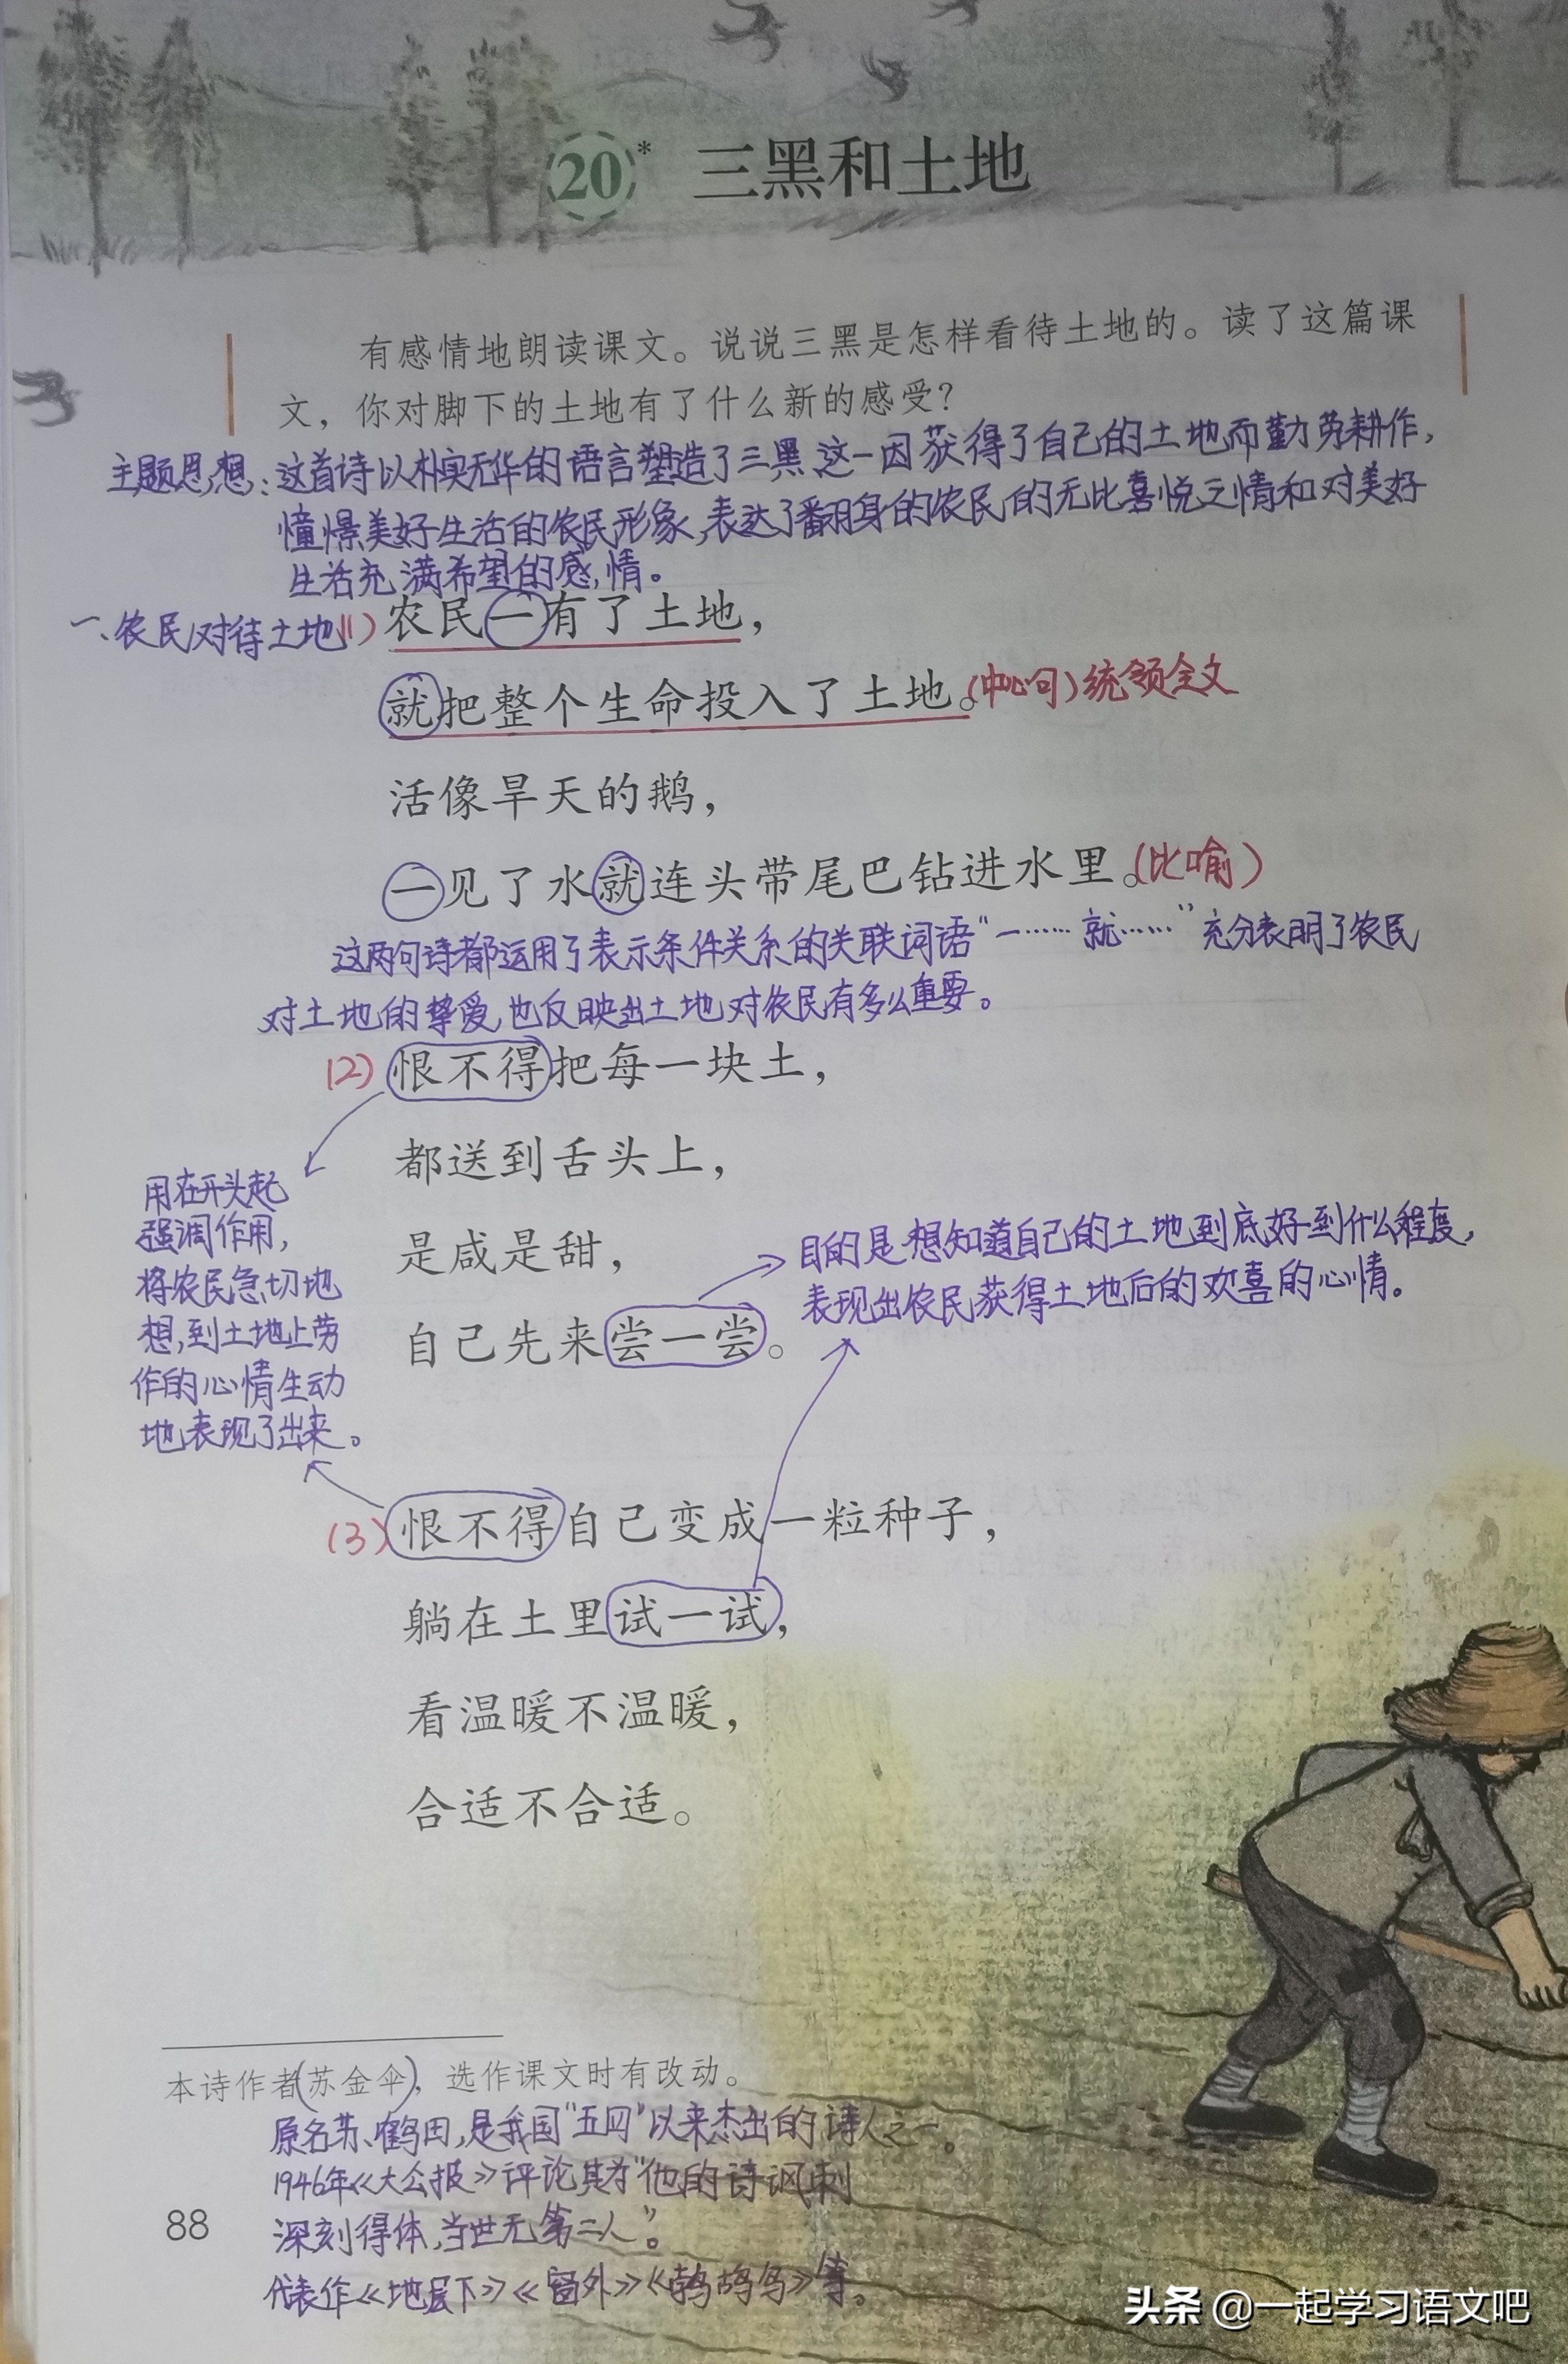 20* 三黑和土地
有感情地朗读课文。说说三黑是怎样看待土地的。读了这篇课
文，你对脚下的土地有了什么新的感受？
主题思想：这首诗以朴实无华的语言塑造了三黑这一因获得了自己的土地而勤劳耕作，
憧憬美好生活的农民形象，表达了翻身的农民的无比喜悦之情和对美好
生活充满希望的感情。
一、农民对待土地(1)农民一有了土地，
就把整个生命投入了土地。(中心句)统领全文
活像旱天的鹅，
一见了水就连头带尾巴钻进水里。(比喻)
这两句诗都运用了表示条件关系的关联词语“一……就……”充分表明了农民
对土地的挚爱，也反映出土地对农民有多么重要。
(2)恨不得把每一块土，
都送到舌头上，
是咸是甜，
自己先来尝一尝。
用在开头起
强调作用，
将农民急切地
想到土地上劳
作的心情生动
地表现了出来。
目的是想知道自己的土地到底好到什么程度，
表现出农民获得土地后的欢喜的心情。
(3)恨不得自己变成一粒种子，
躺在土里试一试，
看温暖不温暖，
合适不合适。
本诗作者(苏金伞)，选作课文时有改动。
原名苏鹤田，是我国“五四”以来杰出的诗人之一。
1946年《大公报》评论其为“他的诗讽刺
深刻得体，当世无第二人”。
代表作《地层下》《窗外》《鹁鸪鸟》等。
88
头条 @一起学习语文吧